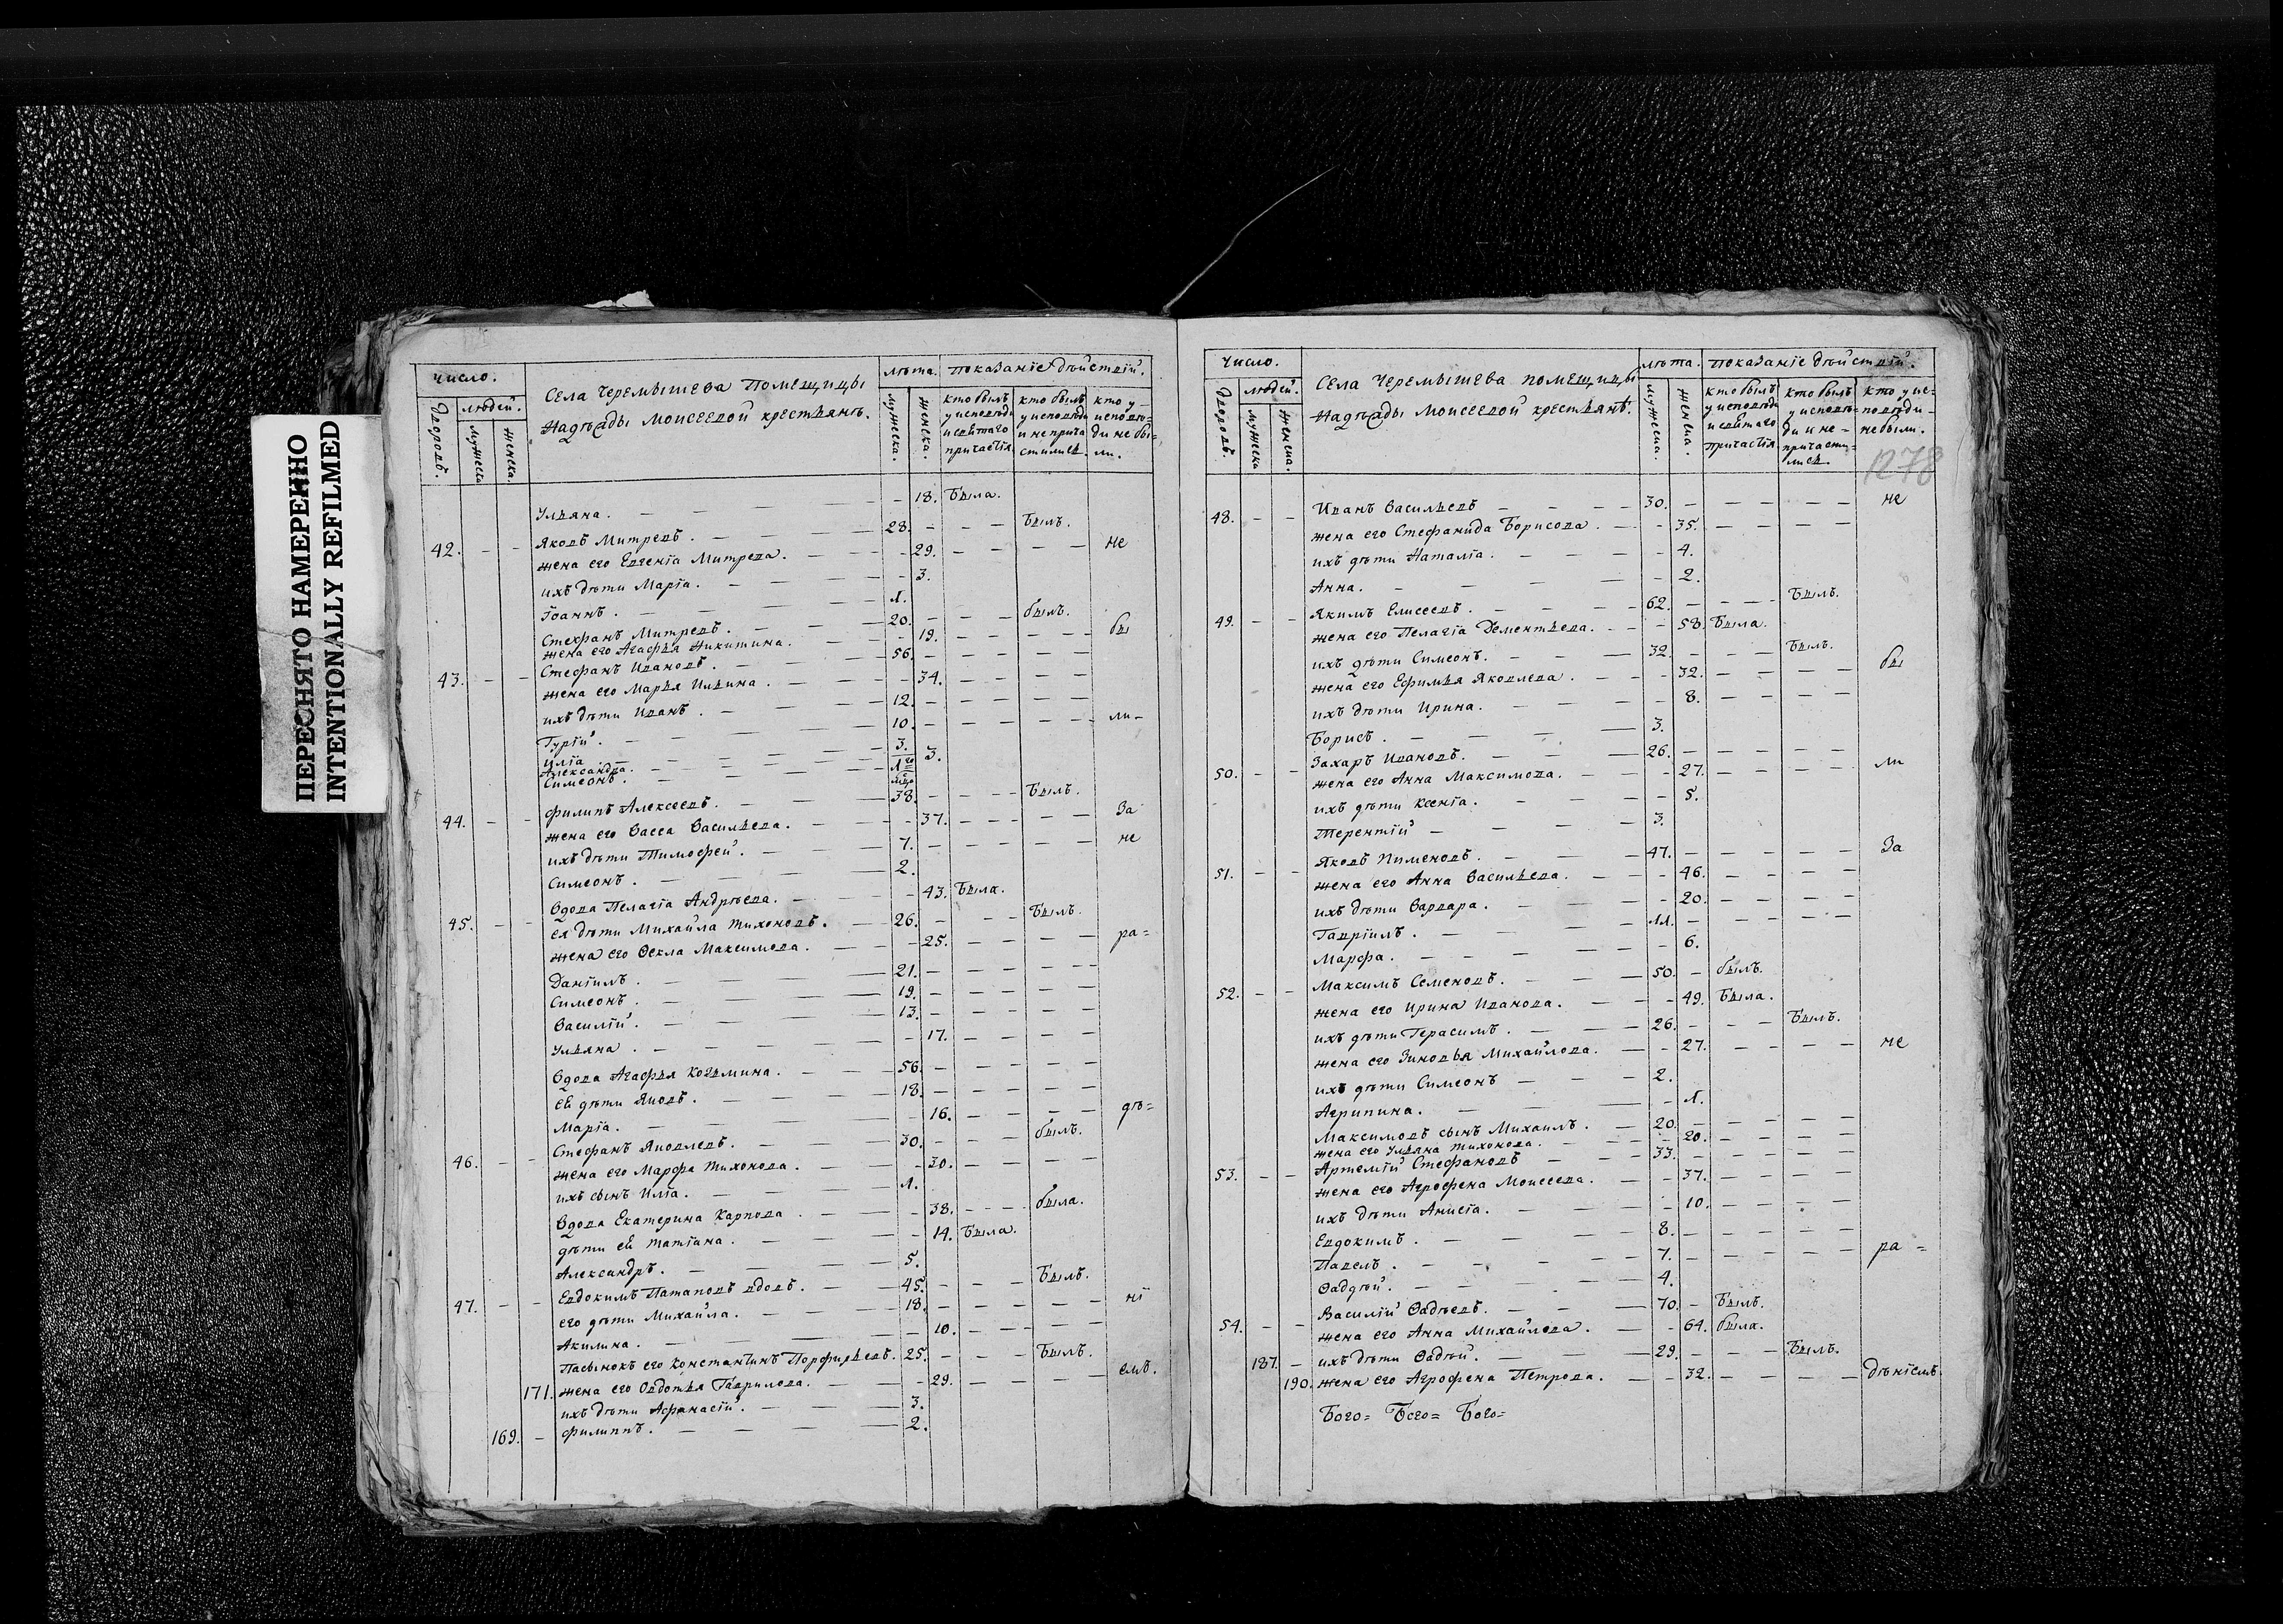 ПЕРЕСНЯТО НАМЕРЕННО
INTENTIONALLY REFILMED
число.
людей.
Дворовъ.
мужеск.
женска.
Села Черемышева помещицы
Надѣжды Моисеевой крестьянъ.
лѣта.
мужеска.
женска.
показаніе дѣйствій.
кто былъ у исповѣди и святаго причастія
кто былъ у исповѣди и не причастился.
кто у исповѣди не были.
Ульяна. 18. Была.
42. Яковъ Митревъ. 28. Былъ.
жена его Евгенія Митрева. 29. не
ихъ дѣти Марія. 3.
Іоаннъ. 1.
Стефанъ Митревъ. 20. былъ.
жена его Агафья Никитина. 19. бы
43. Стефанъ Ивановъ. 56.
жена его Марья Ильина. 34.
ихъ дѣти Иванъ. 12.
Гурій. 10. ли-
Илія. 3.
Александра. 3.
Симеонъ.
44. Филипъ Алексеевъ. 38. Былъ.
жена его Васса Васильева. 37. За
ихъ дѣти Тимофей. 7. не
Симеонъ. 2.
Вдова Пелагія Андрѣева. 43. Была.
45. ея дѣти Михайла Тихоновъ. 26. Былъ.
жена его Фекла Максимова. 25. ра=
Даніилъ. 21.
Симеонъ. 19.
Василій. 13.
Ульяна. 17.
Вдова Агафья Козьмина. 56.
ей дѣти Яковъ. 18.
Марія. 16. дѣ=
46. Стефанъ Яковлевъ. 30. былъ.
жена его Марфа Тихонова. 30.
ихъ сынъ Илія. 1.
Вдова Екатерина Карпова. 38. была.
дѣти ей Татіана. 14. Была.
Александръ. 5.
47. Евдокимъ Патаповъ вдовъ. 45. Былъ.
его дѣти Михайла. 18. ні
Акилина. 10.
Пасынокъ его Константинъ Порфирьевъ. 25. Былъ.
171. жена его Овдотья Гаврилова. 29. емъ.
ихъ дѣти Афанасій. 3.
169. Филиппъ. 2.
число.
людей.
Дворовъ.
мужеска
женска.
Села Черемышева помещицы
Надѣжды Моисеевой крестьянѣ.
лѣта.
мужеска.
женска.
показаніе дѣйствій.
кто былъ у исповѣди и святаго причастія
кто былъ у исповѣди и не причастились.
кто у исповѣди не были.
1278
48. Иванъ Васильевъ 30. не
жена его Стефанида Борисова. 35.
ихъ дѣти Наталіа. 4.
Анна. 2.
49. Якимъ Елисеевъ. 62. Былъ.
жена его Пелагіа Дементьева. 58. Была.
ихъ дѣти Симеонъ. 32. Былъ.
жена его Ефимья Яковлева. 32. бы
ихъ дѣти Ирина. 8.
Борисъ. 3.
50. Захаръ Ивановъ. 26.
жена его Анна Максимова. 27. ли
ихъ дѣти Ксеніа. 5.
Терентій 3.
51. Яковъ Пименовъ. 47. За
жена его Анна Васильева. 46.
ихъ дѣти Варвара. 20.
Гавріилъ. 11.
Марфа. 6.
52. Максимъ Семеновъ. 50. былъ.
жена его Ирина Иванова. 49. Была.
ихъ дѣти Герасимъ. 26. Былъ.
жена его Зиновья Михайлова. 27. не
ихъ дѣти Симеонъ 2.
Агрипина. 1.
Максимовъ сынъ Михаилъ. 20.
жена его Ульяна Тихонова. 20.
53. Артемій Стефановъ 33.
жена его Агрофена Моисеева. 37.
ихъ дѣти Анисіа. 10.
Евдокимъ. 8.
Павелъ. 7. ра=
Фаддѣй. 4.
54. Василій Фадѣевъ. 70. Былъ.
жена его Анна Михайлова. 64. была.
187. ихъ дѣти Фадѣй. 29. Былъ.
190. жена его Агрофена Петрова. 32. дѣніемъ.
Бого= Бого= Бого=